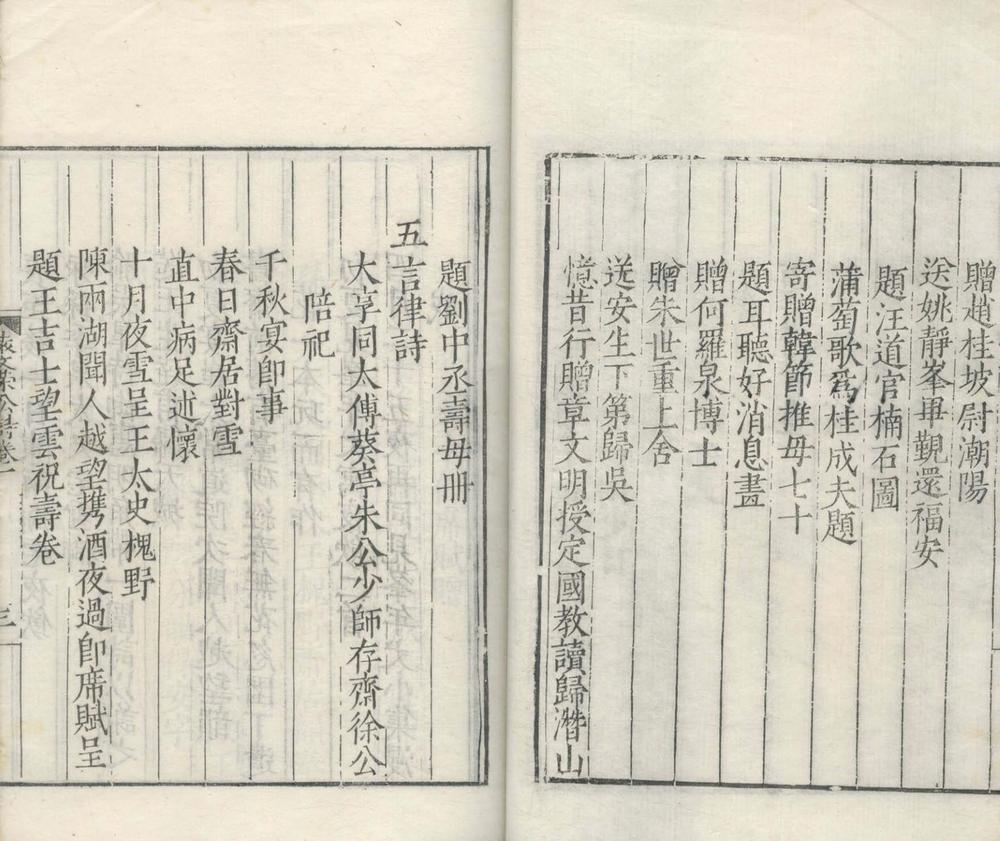 贈趙桂坡尉潮陽
送姚靜峯畢覲還福安
題汪道官楠石圖
蒲萄歌爲桂成夫題
寄贈韓節推毋七十
題耳聽好消息畫
贈何羅泉博士
贈朱世重上舍
送安生下第歸吳
憶昔行贈章文明授定國教讀歸潛山
題劉中丞壽毋冊
五言律詩
大享同太傅葵亭朱公少師存齋徐公
陪祀
千秋宴卽事
春日齋居對雪
直中病足述懷
十月夜雪呈王太史槐野
陳兩湖聞人越望攜酒夜過卽席賦呈
題王吉士望雲祝壽卷
三